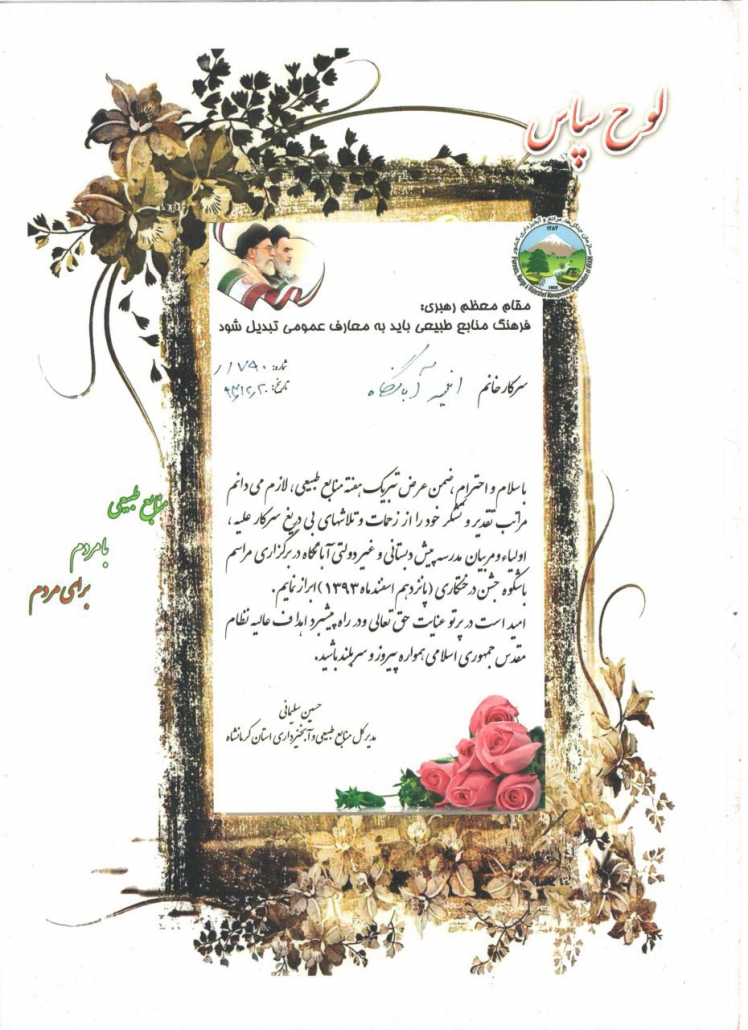 لوح سپاس
سازمان جنگل‌ها، مراتع و آبخیزداری کشور
مقام معظم رهبری:
فرهنگ منابع طبیعی باید به معارف عمومی تبدیل شود
شماره: ۱۱۷۹۰
تاریخ:
سرکار خانم
باسلام و احترام، ضمن عرض تبریک هفته منابع طبیعی، لازم می دانم
مراتب تقدیر و تشکر خود را از زحمات و تلاشهای بی دریغ سرکار علیه ،
اولیاء و مربیان مدرسه پیش دبستانی و غیر دولتی آبانگاه در برگزاری مراسم
باشکوه جشن درختکاری (پانزدهم اسفند ماه ۱۳۹۳) ابراز نمایم.
امید است در پرتو عنایت حق تعالی و در راه پیشبرد اهداف عالیه نظام
مقدس جمهوری اسلامی همواره پیروز و سربلند باشید.
حسین سلیمانی
مدیرکل منابع طبیعی و آبخیزداری استان کرمانشاه
منابع طبیعی
بامردم
برای مردم